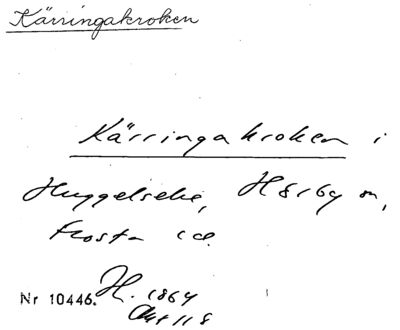 Kärringakroken
Kärringakroken i
Huggelseke, Hörby sn,
Frosta
Nr 10446. H. 1864
Akt 118